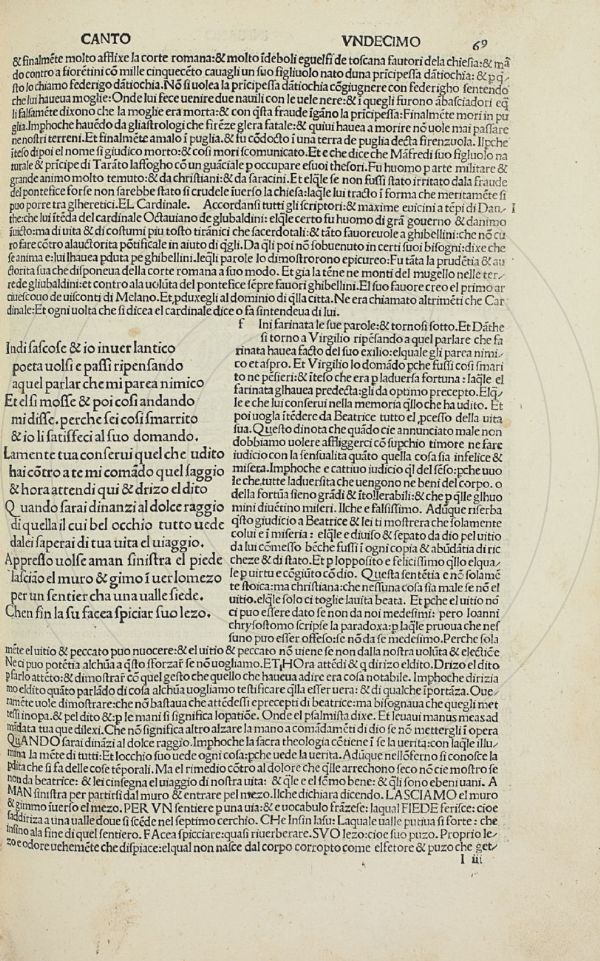 CANTO VNDECIMO 69
& finalmēte molto afflixe la corte romana: & molto īdeboli e guelfi de toscana fautori dela chiesia: & mā
do contro a fiorētini cō mille cinquecēto cauagli un suo figliuolo nato duna prīcipessa dātiochia: & p q
sto lo chiamo federigo dātiochia. Nō si uolea la prīcipessa dātiochia cōgiugnere con federigho sentendo
che lui haueua moglie: Onde lui fece uenire due nauili con le uele nere: & ī quegli furono ābasciadori eq
li falsamēte dixono che la moglie era morta: & con q̄sta fraude īgāno la prīcipessa: Finalmēte mori in pu
glia. Imphoche hauēdo da gliastrologi che firēze glera fatale: & quiui hauea a morire nō uole mai passare
ne nostri terreni. Et finalmēte amalo ī puglia. & fu cōdocto ī una terra de puglia decta firenzuola. Ilpche
īteso dipoi el nome si giudico morto: & cosi mori scomunicato. Et e che dice che Māfredi suo figluolo na
turale & prīcipe di Tarāto lassogho cō un guāciale p occupare e suoi thesori. Fu huomo parte militare &
grande animo molto temuto: & da christiani: & da saracini. Et elq̄le se non fussi stato irritato dala fraude
del pontefice forse non sarebbe stato si crudele īuerso la chiesa: laq̄le lui tracto ī forma che meritamēte si
puo porre tra glheretici. EL Cardinale. Accordansi tutti gli scriptori: & maxime e uicini a tēpi di Dan
the: che lui ītēda del cardinale Octauiano de glubaldini: elq̄le certo fu huomo di grā gouerno & danimo
īuicto: ma di uita & di costumi piu tosto tirānici che sacerdotali: & tāto fauoreuole a ghibellini: che nō cu
ro fare cōtro alauctorita pōtificale in aiuto di q̄gli. Da q̄li poi nō sobuenuto in certi suoi bisogni: dixe che
se anima e: lui lhauea pduta pe ghibellini. Leq̄li parole lo dimostrorono epicureo: Fu tāta la prudētia & au
ctorita sua che disponeua della corte romana a suo modo. Et gia la tēne ne monti del mugello nelle ter
re de gliubaldini: et contro ala uolūta del pontefice sēpre fauori ghibellini. El suo fauore creo el primo ar
quescouo de uisconti di Melano. Et pduxegli al dominio di q̄lla citta. Ne era chiamato altrimēti che Car
dinale: Et ogni uolta che si dicea el cardinale dice o fa sintendeua di lui.
Indi sascose & io inuer lantico
poeta uolsi e passi ripensando
aquel parlar che mi parea nimico
Et el si mosse & poi cosi andando
mi disse. perche sei cosi smarrito
& io li satisfeci al suo domando.
Lamente tua conserui quel che udito
hai cōtro a te mi comādo quel saggio
& hora attendi qui & drizo el dito
Quando sarai dinanzi al dolce raggio
di quella il cui bel occhio tutto uede
da lei saperai di tua uita el uiaggio.
Appresso uolse a man sinistra el piede
lasciāo el muro & gimo ī uer lo mezo
per un sentier cha una ualle siede.
Che n fin la su facea spiciar suo lezo.
f Ini farinata le sue parole: & tornosi sotto. Et Dāthe
si torno a Virgilio ripēsando a quel parlare che fa
rinata hauea facto del suo exilio: elquale gli parea nimi
co et aspro. Et Virgilio lo domādo pche fussi cosi smari
to ne pēsieri: & īteso che era p laduersa fortuna: laq̄le el
farinata glhauea predecta: gli da optimo precepto. Elq̄
le e che lui conserui nella memoria q̄llo che ha udito. Et
poi uogla ītēdere da Beatrice tutto el pcesso della uita
sua. Questo dinota che quādo cie annunciato male non
dobbiamo uolere affliggerci cō supchio timore ne fare
iudicio con la sensualita quāto quella cosa sia infelice &
misera. Imphoche e cattiuo iudicio q̄l del sēso: pche uuo
le che tutte laduersita che uengono ne beni del corpo. o
della fortūa sieno grādi & ītollerabili: & che p q̄lle glhuo
mini diuētino miseri. Ilche e falsissimo. Adūque riserba
q̄sto giudicio a Beatrice & lei ti mostrera che solamente
colui e ī miseria: elq̄le e diuiso & sepato da dio pel uitio
da lui cōmesso bēche fussi ī ogni copia & abūdātia di ric
cheze & di stato. Et p lopposito e felicissimo q̄llo elqua
le p uirtu e cōgiūto cō dio. Questa sentētia e nō solamē
te stoica: ma christiana: che nessuna cosa sia male se nō el
uitio. elq̄le solo ci toglie la uita beata. Et pche el uitio nō
ci puo essere dato se non da noi medesimi: pero Ioanni
chrysostomo scripse la paradoxa: p laq̄le pruoua che nes
suno puo esser offeso: se nō da se medesimo. Perche sola
mēte el uitio & peccato puo nuocere: & el uitio & peccato nō uiene se non dalla nostra uolūta & electiōe
Ne ci puo potētia alchūa a q̄sto sforzar se nō uogliamo. ET HOra attēdi & q̄ dirizo el dito. Drizo el dito
p farlo attēto: & dimostrar cō quel gesto che quello che haueua adire era cosa notabile. Imphoche dirizia
mo el dito quāto parlādo di cosa alchūa uogliamo testificare q̄lla esser uera: & di qualche īportāza. Oue
ramēte uole dimostrare: che nō bastaua che attēdessi e precepti di beatrice: ma bisognaua che quegli met
tessi in opa. & pel dito & p le mani si significa lopatiōe. Onde el psalmista dixe. Et leuaui manus meas ad
mādata tua que dilexi. Che nō significa altro alzare la mano a comādamēti di dio se nō mettergli ī opera
QuANDO sarai dināzi al dolce raggio. Imphoche la sacra theologia cōtiene ī se la uerita: con laq̄le illu
mina la mēte di tutti: Et locchio suo uede ogni cosa: pche uede la uerita. Adūque nellōferno si conosce la
pdita che si fa delle cose tēporali. Ma el rimedio cōtro al dolore che q̄lle arrechono seco nō cie mostro se
non da beatrice: & lei cinsegna el uiaggio di nostra uita: & q̄le e el sōmo bene: & q̄li sono e beni uani. A
MAN sinistra per partirsi dal muro & entrare pel mezo. Ilche dichiara dicendo. LASCIAMO el muro
& gimmo īuerso el mezo. PER VN sentiere p una uia: & e uocabulo frāzese: laqual FIEDE ferisce: cioe
saddiriza a una ualle doue si scēde nel septimo cerchio. CHe Infin lasu: Laquale ualle putiua si forte: che
insino ala fine di quel sentiero. FAcea spicciare: quasi riuerberare. SVO lezo: cioe suo puzo. Proprio le
zo e odore uehemēte che dispiace: elqual non nasce dal corpo corropto come el fetore & puzo che get
I iii